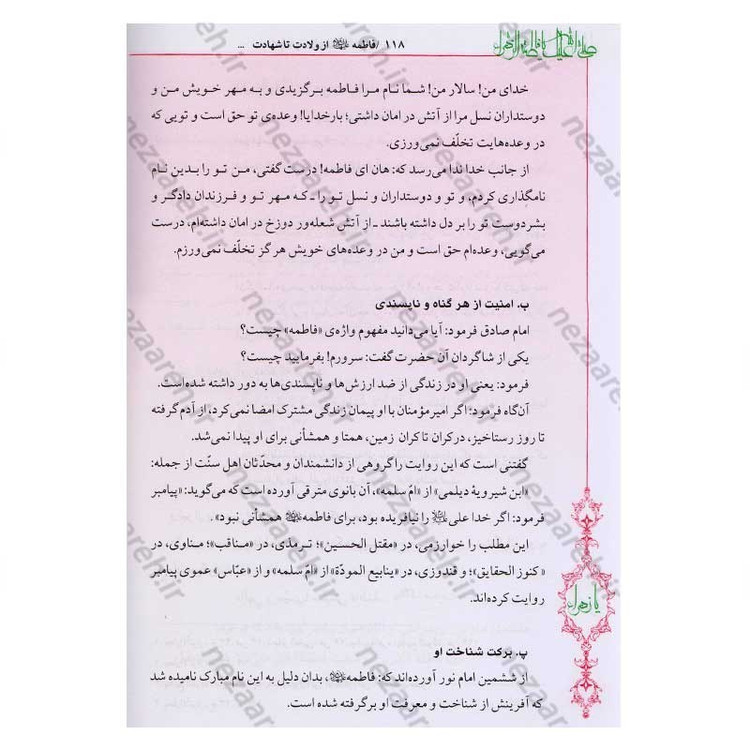 ۱۱۸ / فاطمه از ولادت تا شهادت ...
خدای من! سالار من! شما نام مرا فاطمه برگزیدی و به مهر خویش من و
دوستداران نسل مرا از آتش در امان داشتی؛ بارخدایا! وعده‌ی تو حق است و تویی که
در وعده‌هایت تخلّف نمی‌ورزی.
از جانب خدا ندا می‌رسد که: هان ای فاطمه! درست گفتی، من تو را بدین نام
نامگذاری کردم، و تو و دوستداران و نسل تو را ـ که مهر تو و فرزندان دادگر و
بشردوست تو را بر دل داشته باشند ـ از آتش شعله‌ور دوزخ در امان داشته‌ام، درست
می‌گویی، وعده‌ام حق است و من در وعده‌های خویش هرگز تخلّف نمی‌ورزم.
ب. امنیت از هر گناه و ناپسندی
امام صادق فرمود: آیا می‌دانید مفهوم واژه‌ی «فاطمه» چیست؟
یکی از شاگردان آن حضرت گفت: سرورم! بفرمایید چیست؟
فرمود: یعنی او در زندگی از ضد ارزش‌ها و ناپسندی‌ها به دور داشته شده است.
آن‌گاه فرمود: اگر امیرمؤمنان با او پیمان زندگی مشترک امضا نمی‌کرد، از آدم گرفته
تا روز رستاخیز، در کران تا کران زمین، همتا و همشأنی برای او پیدا نمی‌شد.
گفتنی است که این روایت را گروهی از دانشمندان و محدّثان اهل سنّت از جمله:
«ابن شیرویهٔ دیلمی» از «امّ سلمه»، آن بانوی مترقی آورده است که می‌گوید: «پیامبر
فرمود: اگر خدا علی را نیافریده بود، برای فاطمه همشأنی نبود».
این مطلب را خوارزمی، در «مقتل الحسین»؛ ترمذی، در «مناقب»؛ مناوی، در
«کنوز الحقایق»؛ و قندوزی، در «ینابیع المودّة» از «امّ سلمه» و از «عبّاس» عموی پیامبر
روایت کرده‌اند.
یا زهراء
پ. برکت شناخت او
از ششمین امام نور آورده‌اند که: فاطمه، بدان دلیل به این نام مبارک نامیده شد
که آفرینش از شناخت و معرفت او برگرفته شده است.
nezaareh.ir